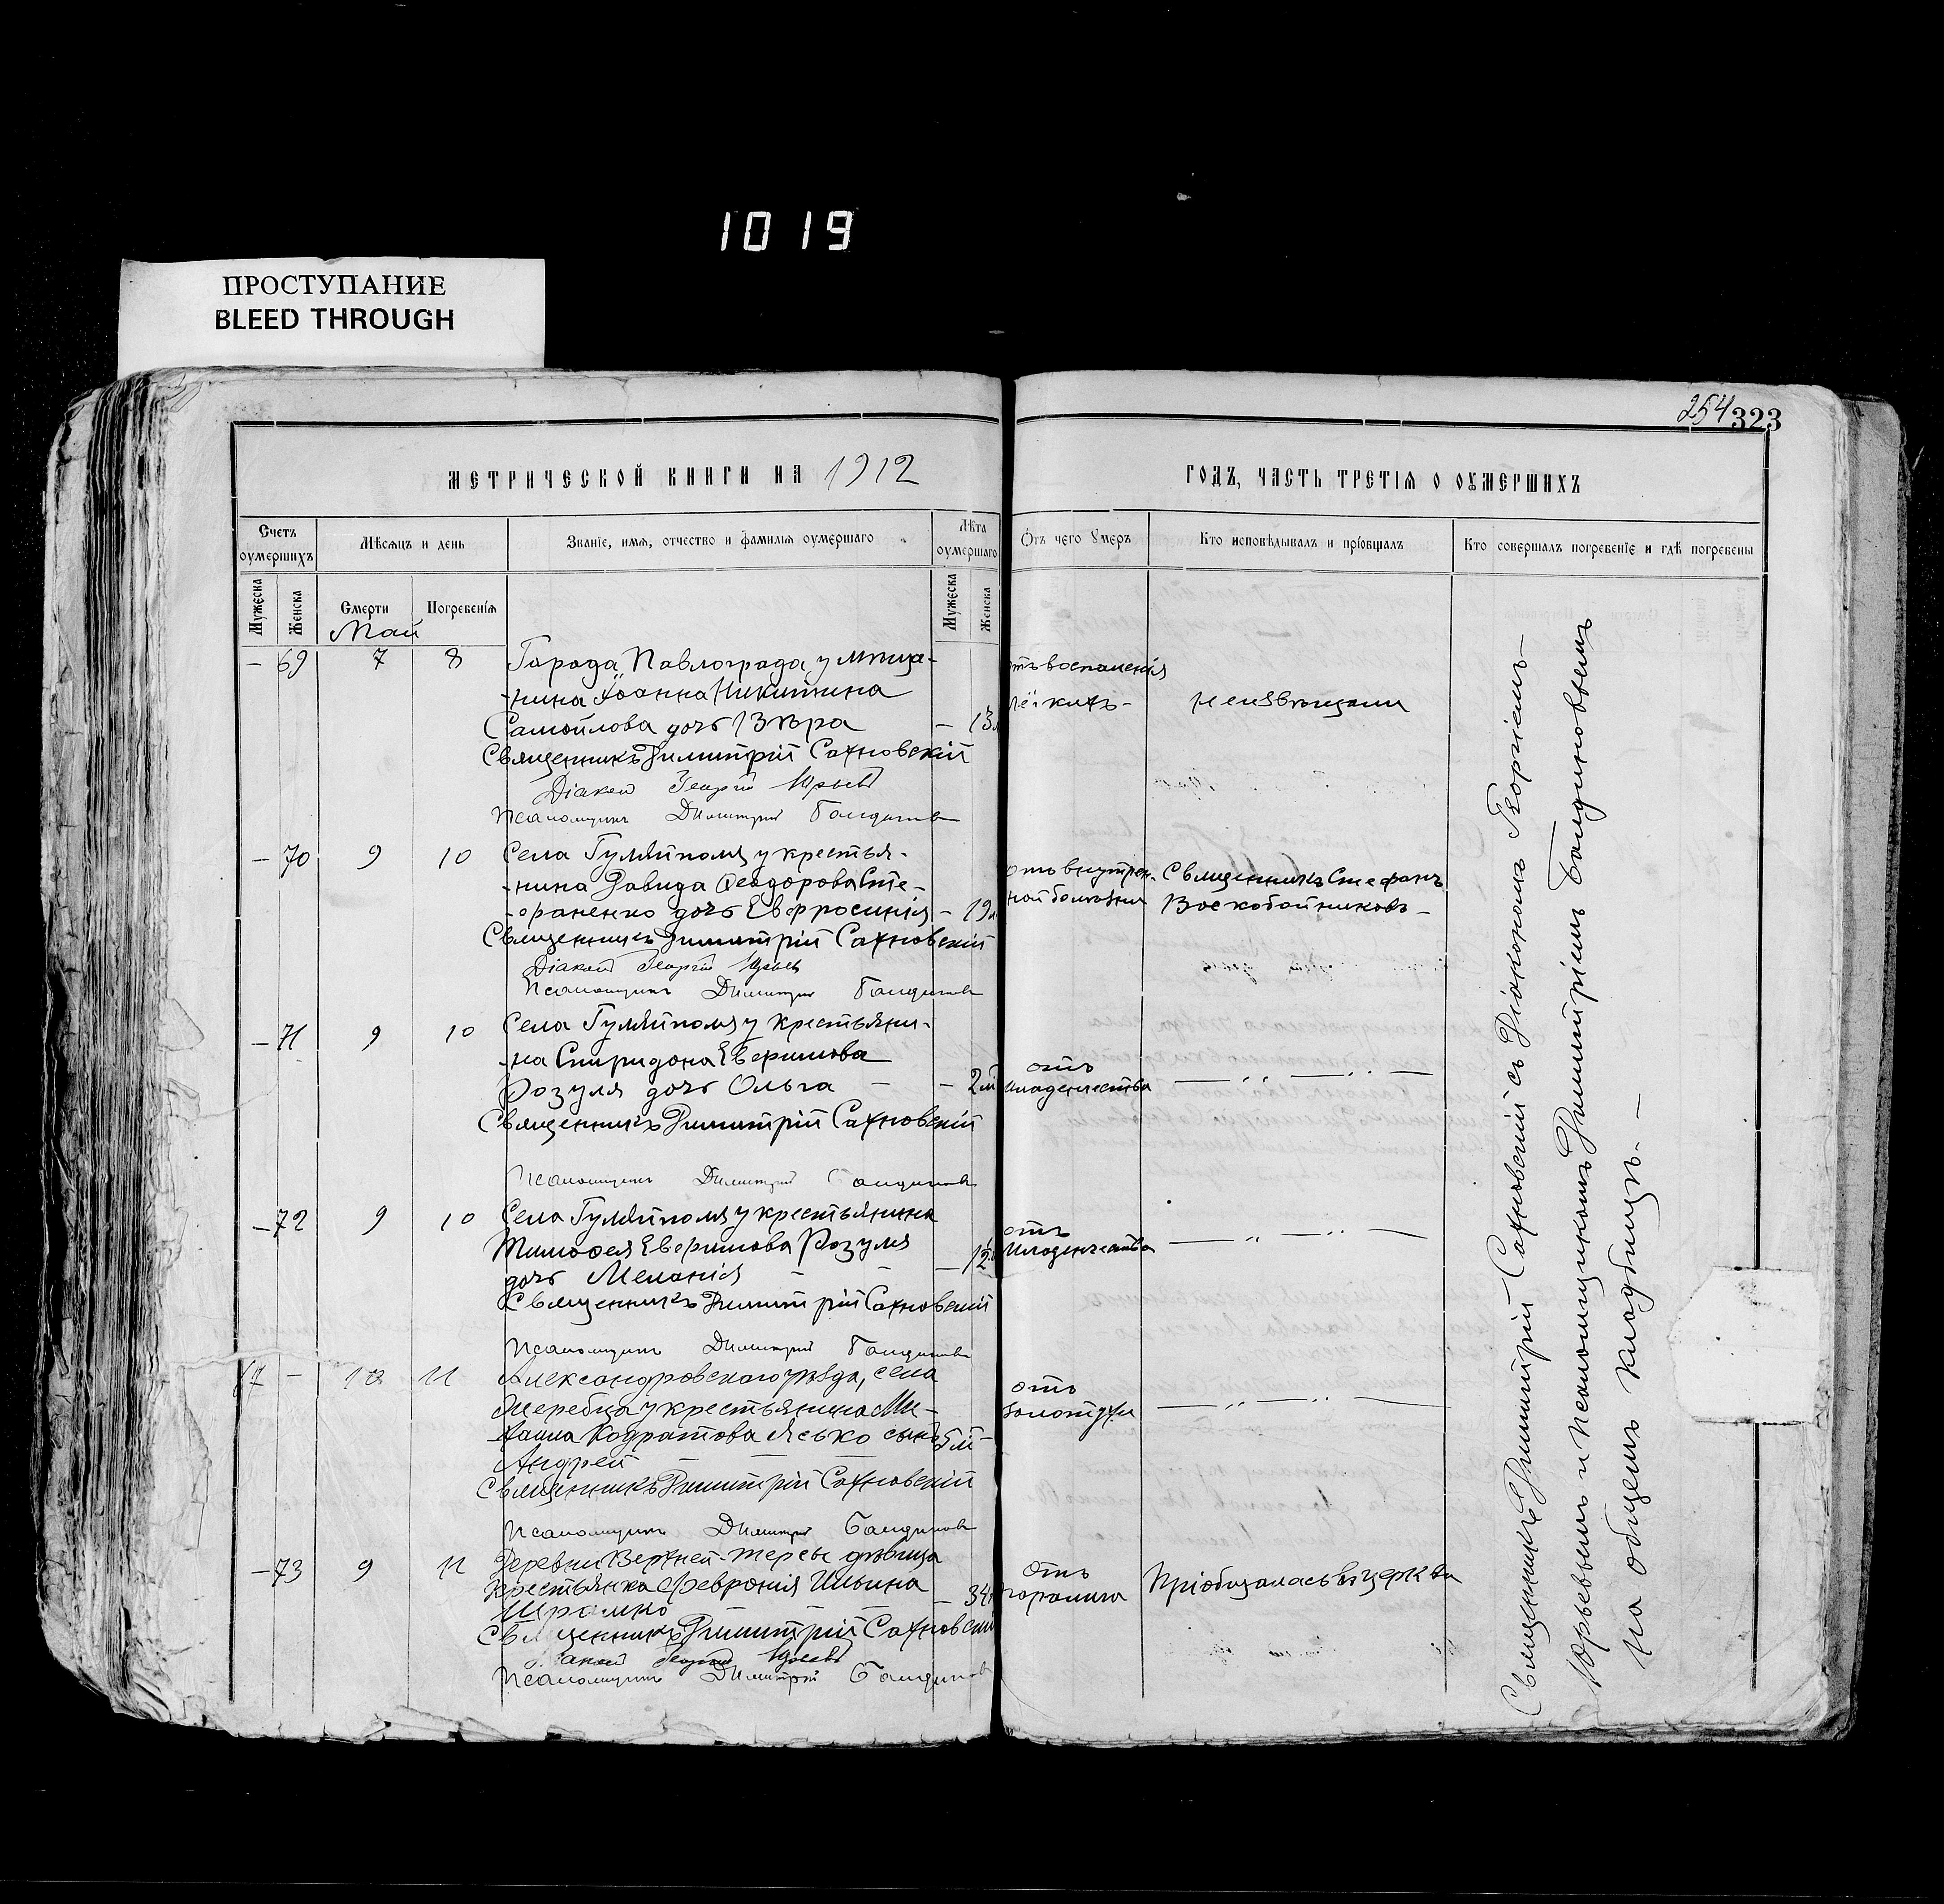 1019
ПРОСТУПАНИЕ
BLEED THROUGH
254 323
МЕТРИЧЕСКОЙ КНИГИ НА 1912
ГОДЪ, ЧАСТЬ ТРЕТІЯ О ОУМЕРШИХЪ
Счетъ оумершихъ
Мѣсяцъ и день
Званіе, имя, отчество и фамилія оумершаго
Лѣта оумершаго
Отъ чего Умеръ
Кто исповѣдывалъ и пріобщалъ
Кто совершалъ погребеніе и гдѣ погребены
Мужеска
Женска
Смерти
Погребенія
Мужеска
Женска
Май
– 69 7 8 Города Павлограда у мѣща-
-нина Іоанна Никитина
Самойлова дочь Вѣра – 13
отъ воспаленія
легкихъ –
не извѣщали
Священникъ Димитрій Сахновскій
Діаконъ Георгій Юрьевъ
Псаломщикъ Димитрій Балдинов
– 70 9 10 Села Гуляйполя у крестья-
-нина Давида Ѳеодорова Сте-
-фаненко дочь Евфросинія – 19
отъ внутрен-
ной болѣзни
Священникъ Стефанъ
Воскобойниковъ –
Священникъ Димитрій Сахновскій
Діаконъ Георгій Юрьевъ
Псаломщикъ Димитрій Балдинов
– 71 9 10 Села Гуляйполя у крестьяни-
-на Спиридона Евфимова
Розуля дочь Ольга – – 2
отъ
младенчества
— ,, — ,, —
Священникъ Димитрій Сахновскій
Псаломщикъ Димитрій Балдинов
– 72 9 10 Села Гуляйполя у крестьянина
Тимофея Евфимова Розуля
дочь Меланія – –
отъ
младенчества
— ,, — ,, —
Священникъ Димитрій Сахновскій
Псаломщикъ Димитрій Балдинов
67 – 10 11 Александровскаго уѣзда, села
Жеребца у крестьянина Ми-
хаила Кодратова Ясько сынъ
Андрей – –
отъ
золотухи
— ,, — ,, —
Священникъ Димитрій Сахновскій
Псаломщикъ Димитрій Балдинов
– 73 9 11 Деревни Верхней-Терсы дѣвица
крестьянка Февронія Ильина
Шрамко – 34
отъ
паралича
Пріобщалась въ церкви
Священникъ Димитрій Сахновскій
Діаконъ Георгій Юрьевъ
Псаломщикъ Димитрій Балдинов
Священникъ Димитрій Сахновскій съ Діакономъ Георгіемъ –
Юрьевымъ и Псаломщикомъ Димитріемъ Балдиновымъ
на общемъ кладбищѣ. –